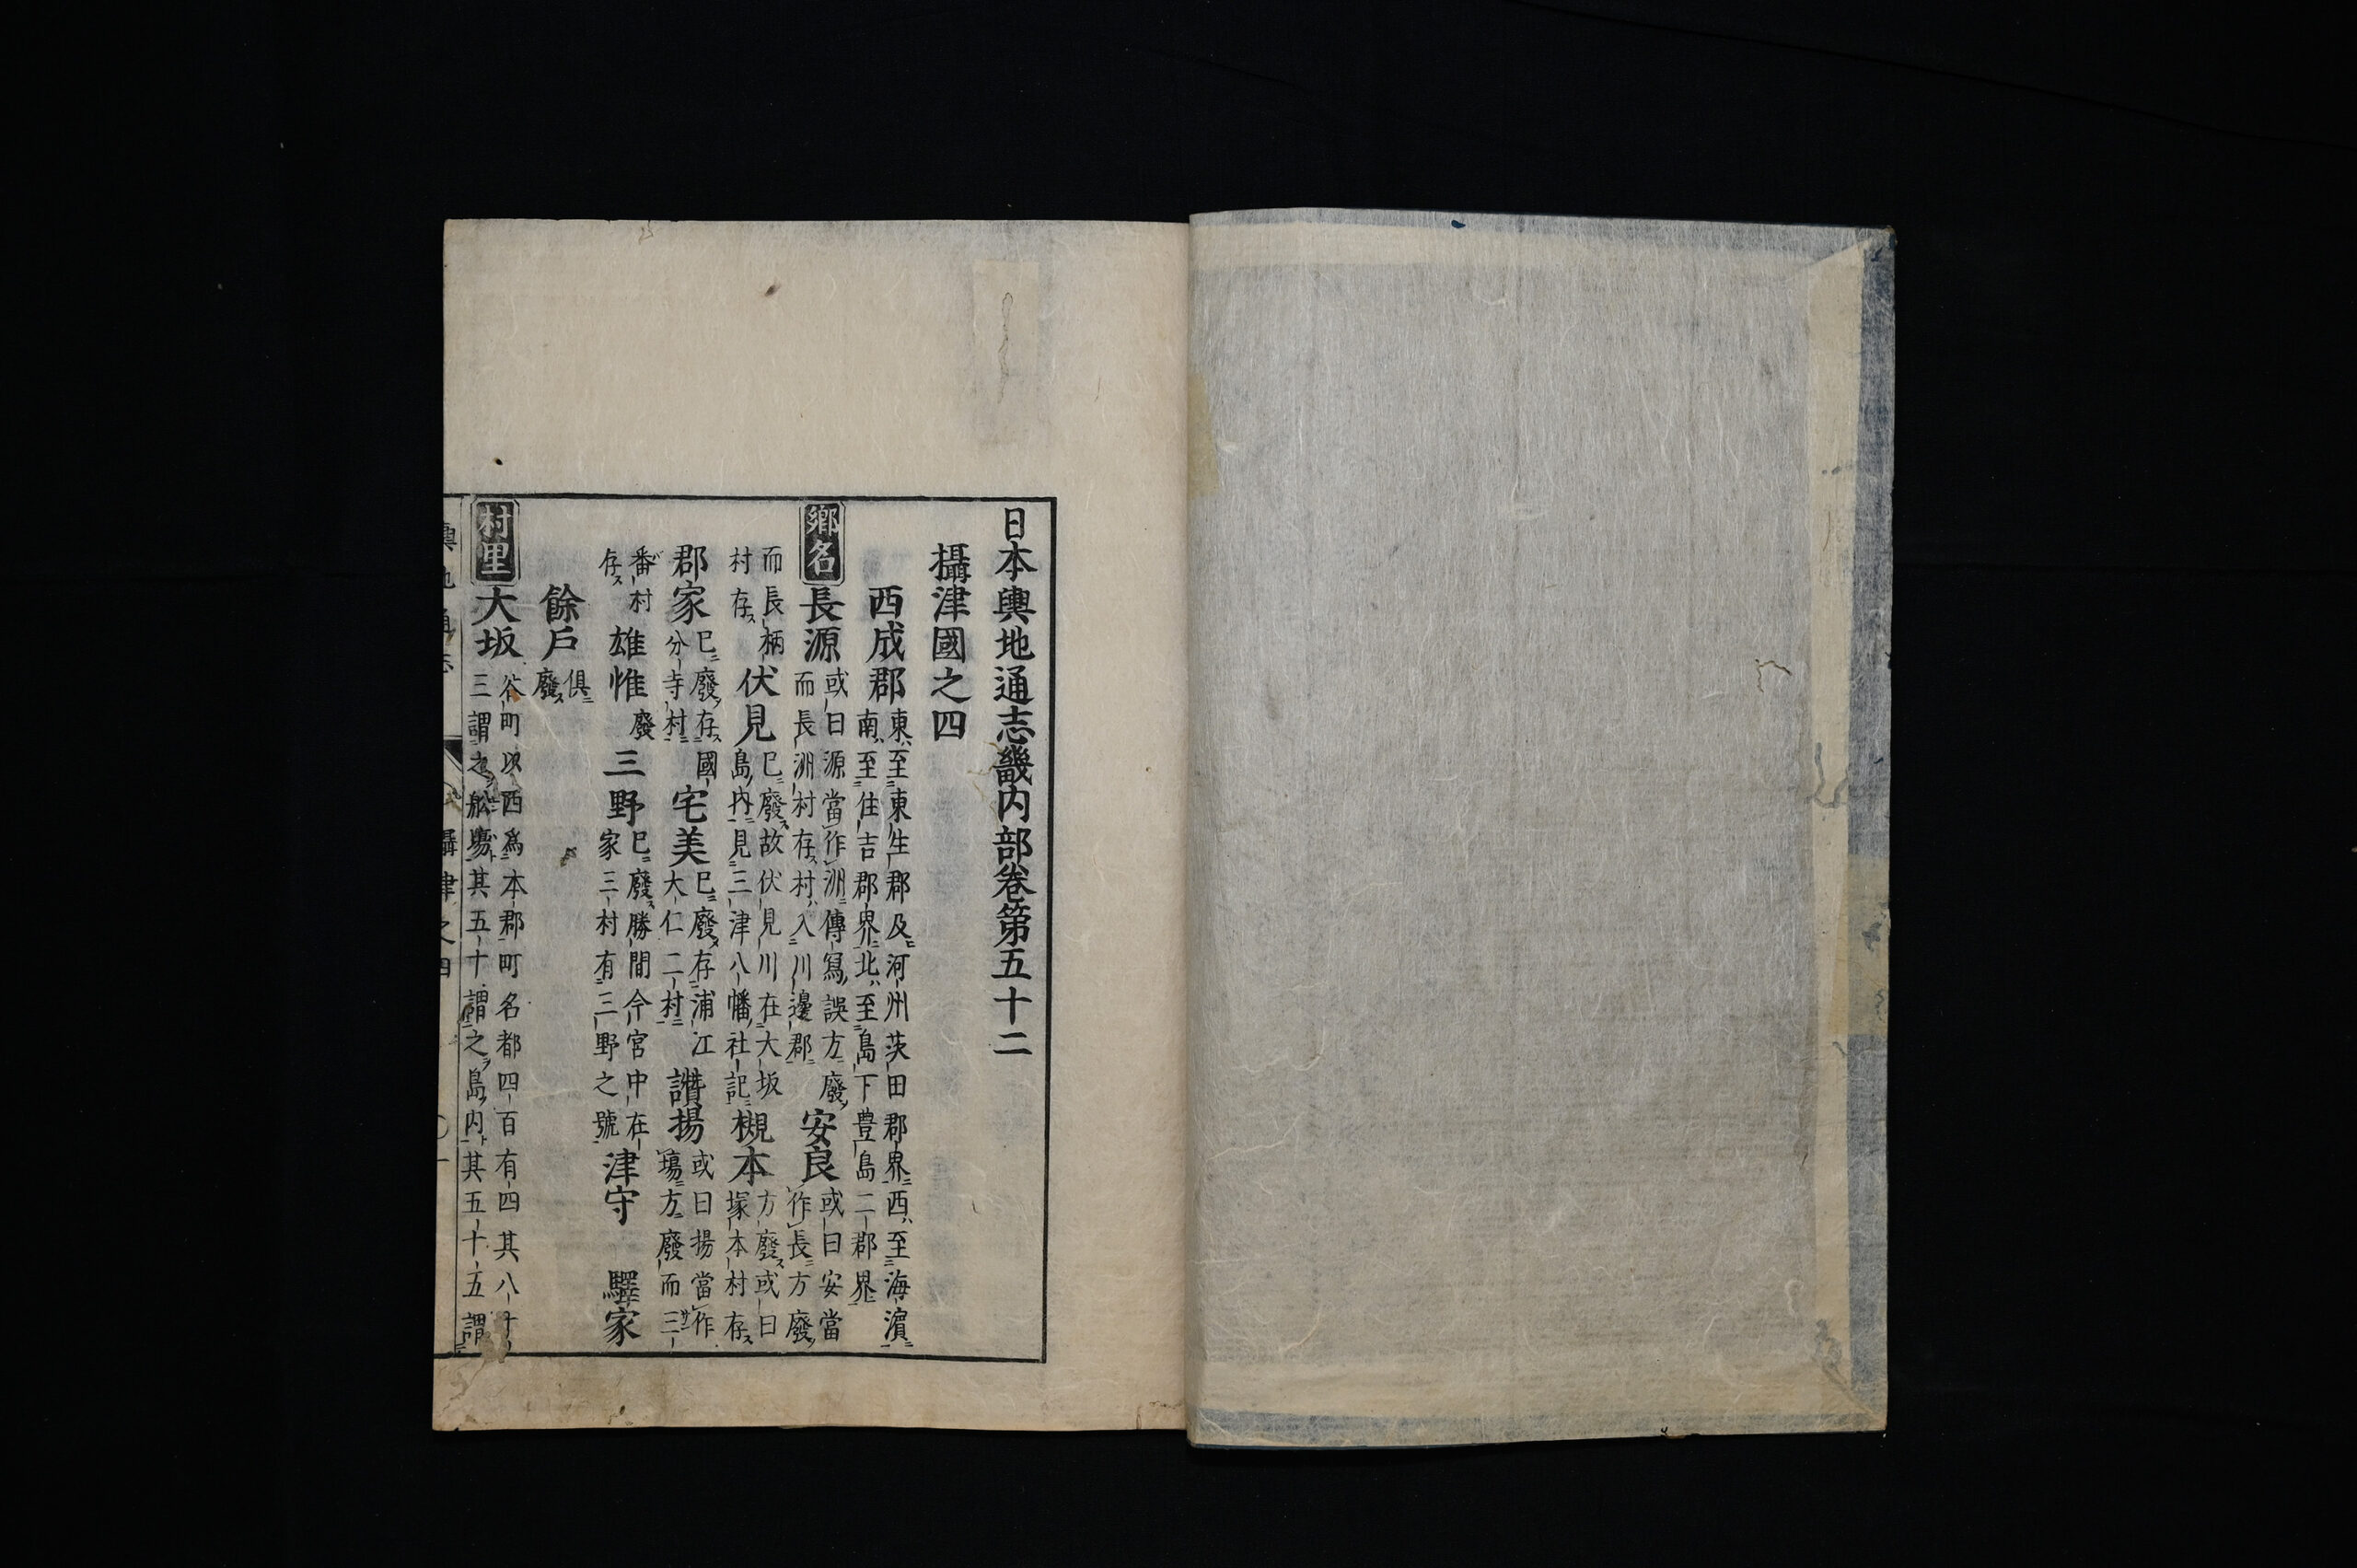 日本輿地通志畿内部卷第五十二
攝津國之四
西成郡
東ハ至二東生郡及二河州茨田郡界一西ハ至二海濵一
南ハ至二住吉郡界一北ハ至二島下豊島二郡界一
鄉名
長源
或曰源當作洲傳寫誤方廢
而長洲村存ス村ハ入川邊郡
安良
或曰安當
作長方廢
而長柄
村存ス
伏見
已廢ス故伏見川在大坂
島内見三津八幡社記
槻本
方廢ス或曰
塚本村存ス
郡家
已廢存ス國
分寺村
宅美
已廢存浦江
大仁二村
讚揚
或曰揚當作
塲方廢而三
番村
存ス
雄惟
廢
三野
已廢ス勝間今宮中在
家三村有三野之號
津守
驛家
餘戶
俱
廢ス
村里
大坂
谷町以西爲本郡町名都四百有四其八十
三謂之舩塲其五十謂之島ノ内其五十五謂
攝津之四